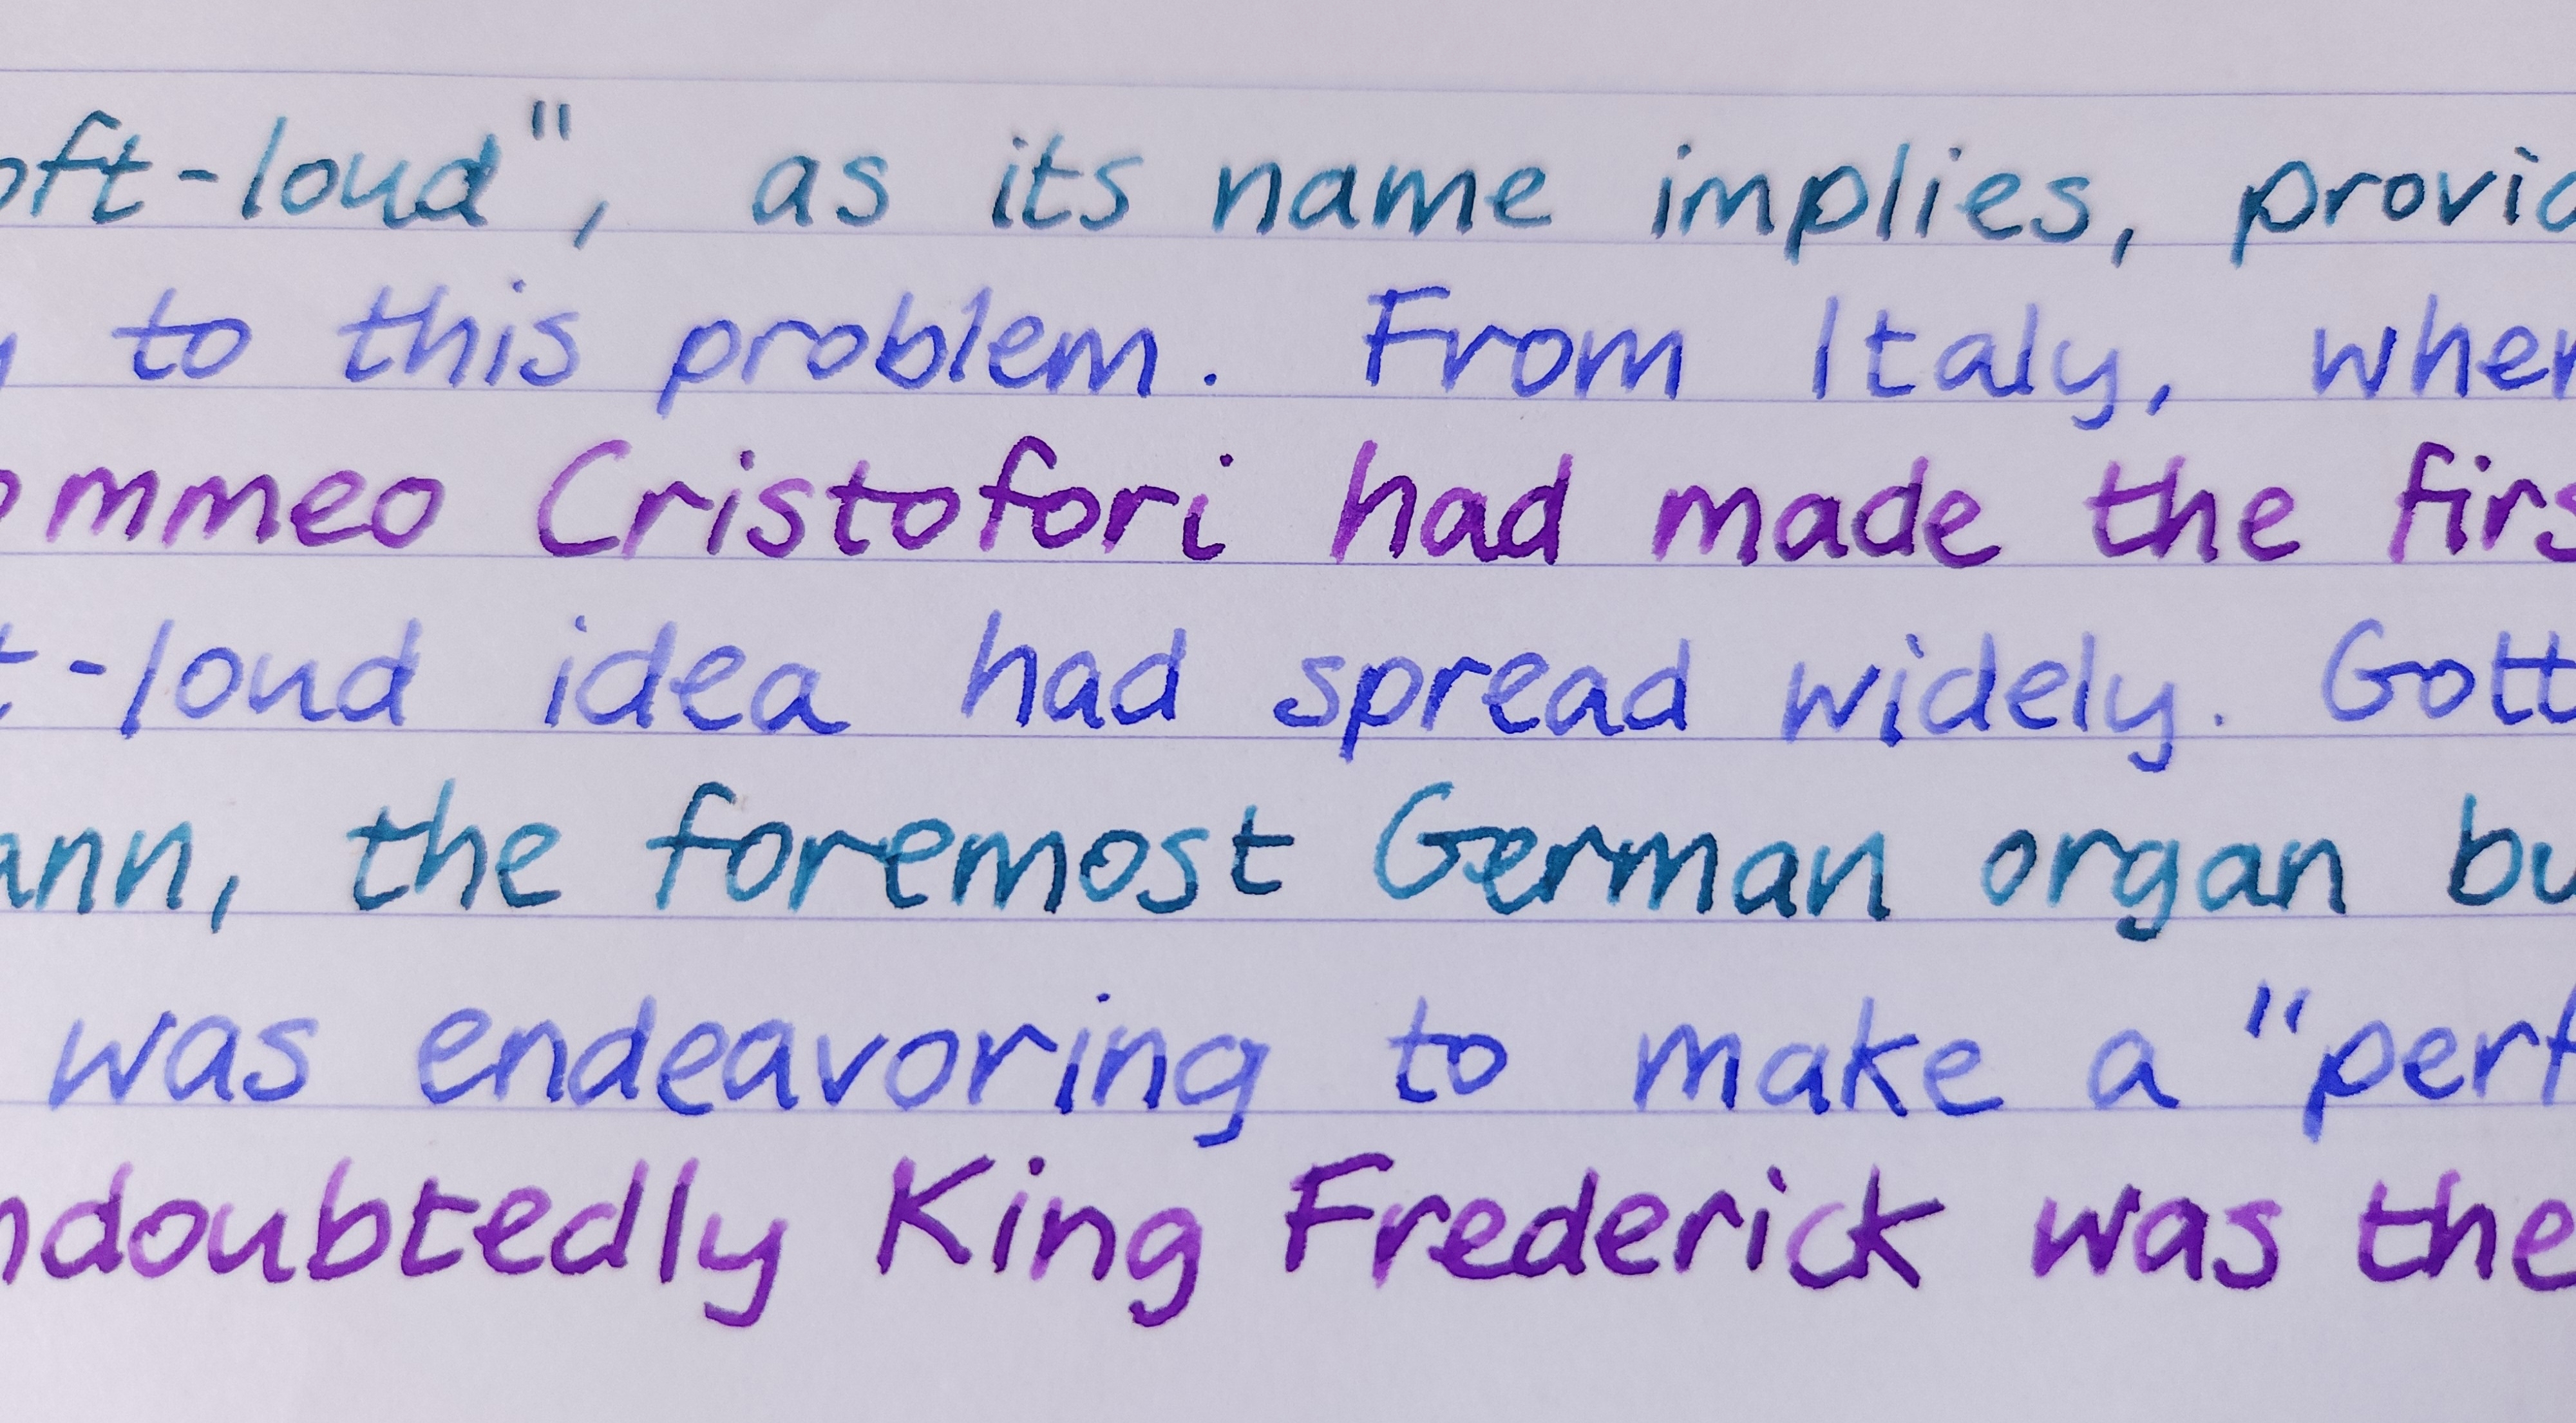 oft-loud", as its name implies, provid
to this problem. From Italy, wher
ommeo Cristofori had made the firs
t-loud idea had spread widely. Gott
ann, the foremost German organ bu
was endeavoring to make a "perf
ndoubtedly King Frederick was the